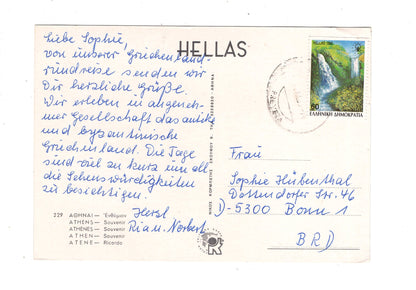 HELLAS
Liebe Sophie,
von unserer Griechenland-
rundreise senden wir
Dir herzliche Grüße.
Wir erleben in angeneh-
mer Gesellschaft das antike
und byzantinische
Griechenland. Die Tage
sind viel zu kurz um all
die Sehenswürdigkeiten
zu besichtigen.
Herzl
Ria u. Norbert
229 ΑΘΗΝΑΙ — Ἐνθύμιον
ATHENS — Souvenir
ATHENES — Souvenir
ATHEN — Souvenir
ATENE — Ricordo
60
ΕΛΛΗΝΙΚΗ ΔΗΜΟΚΡΑΤΙΑ
Frau
Sophie Hübenthal
Dottendorfer Str. 46
D-5300 Bonn 1
BRD